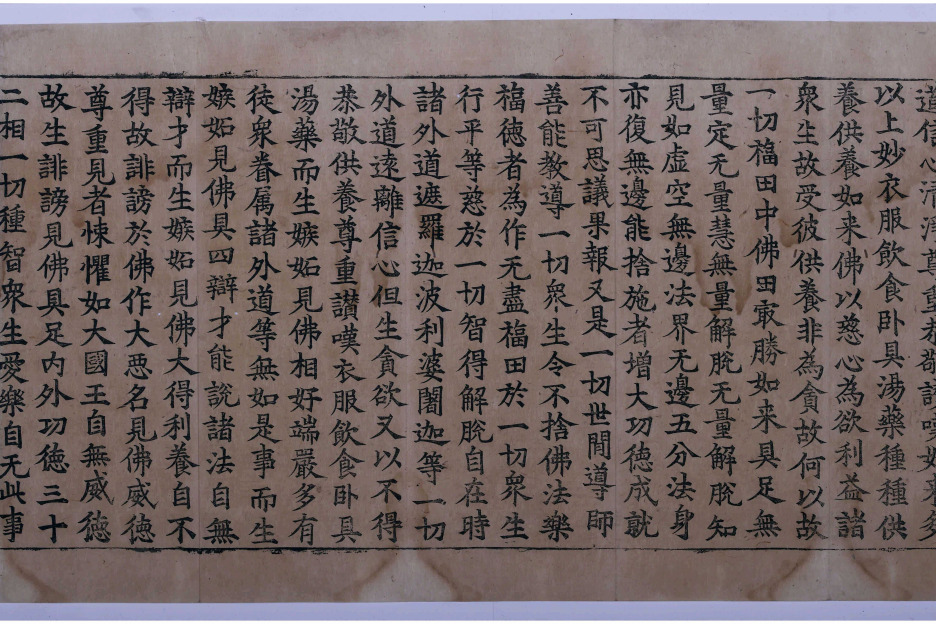 道信心清淨尊重恭敬讃嘆如来多
以上妙衣服飲食卧具湯藥種種供
養供養如来佛以慈心為欲利益諸
衆生故受彼供養非為貪故何以故
一切福田中佛田㝡勝如来具足無
量定无量慧無量解脫无量解脫知
見如虛空無邊法界无邊五分法身
亦復無邊能捨施者增大功德成就
不可思議果報又是一切世間導師
善能教導一切衆生令不捨佛法樂
福德者為作无盡福田於一切衆生
行平等慈於一切智得解脫自在時
諸外道遮羅迦波利婆闍迦等一切
外道遠離信心但生貪欲又以不得
恭敬供養尊重讃嘆衣服飲食卧具
湯藥而生嫉妬見佛相好端嚴多有
徒衆眷属諸外道等無如是事而生
嫉妬見佛具四辯才能說諸法自無
辯才而生嫉妬見佛大得利養自不
得故誹謗於佛作大惡名見佛威德
尊重見者悚懼如大國王自無威德
故生誹謗見佛具足內外功德三十
二相一切種智衆生愛樂自无此事